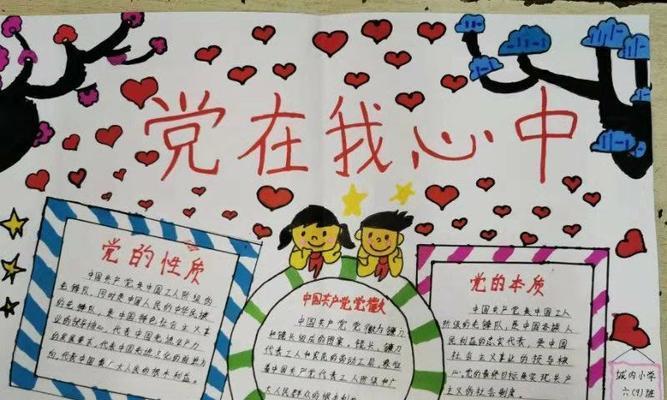 党在我心中
党的性质
中国共产党是中国工人阶级的
先锋队，同时是中国人民的中华民族
的先锋队，是中国特色社会主义事
业的领导核心，代表中国先进生产力
的发展要求，代表中国先进文化的前进方
向，代表中国最广大人民的根本利益。
中国共产党党徽
中国共产党党徽为镰刀
和锤头组成的图案，
代表工人和农民的劳动工具，
着中国共产党代表工人阶级和广
大人民群众的根本利益
党的本质
中国共产党是中国工人
阶级的先锋队，是中国各族人
民利益的忠实代表，是中国
社会主义事业的领导核
心。党的最终目标是实现共产
主义的社会制度。
城内小学
六(9)班